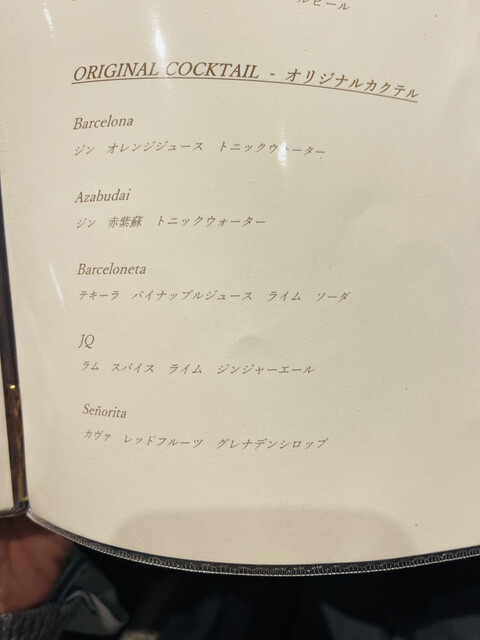 ルビール
ORIGINAL COCKTAIL - オリジナルカクテル
Barcelona
ジン オレンジジュース トニックウォーター
Azabudai
ジン 赤紫蘇 トニックウォーター
Barceloneta
テキーラ パイナップルジュース ライム ソーダ
JQ
ラム スパイス ライム ジンジャーエール
Señorita
カヴァ レッドフルーツ グレナデンシロップ